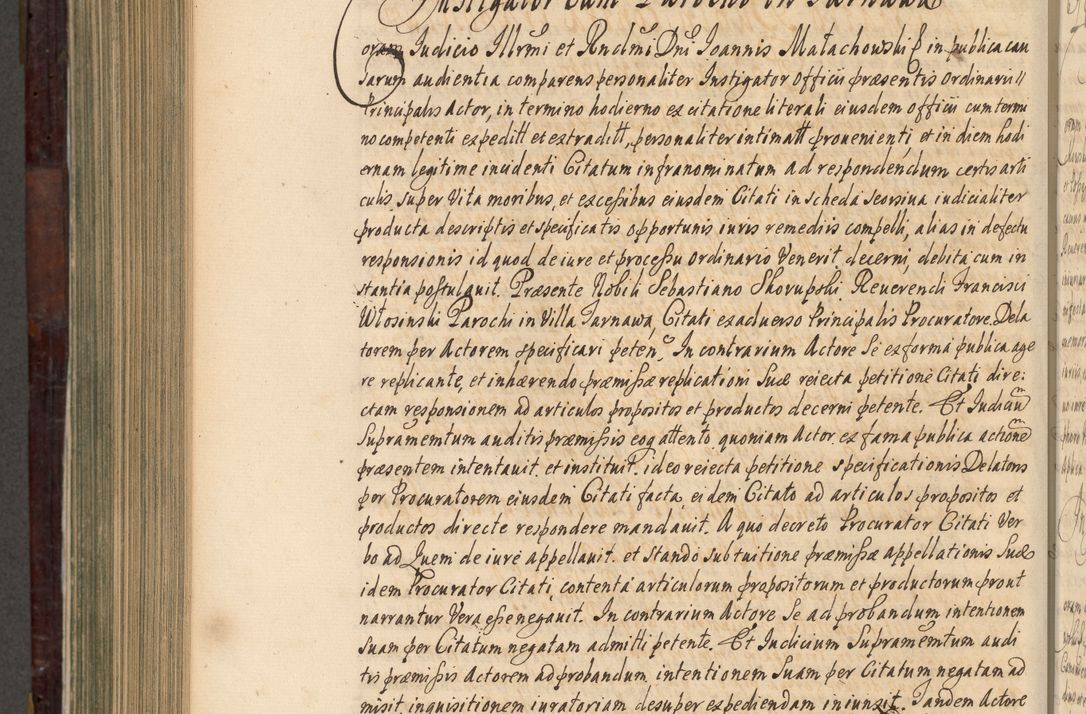 Instigator cum Parocho in Tarnawa
oram Iudicio Illrmi et Rndmi Dni Ioannis Małachowski E in publica cau
sarum audientia comparens personaliter Instigator Officii præsentis Ordinarii
Principalis Actor, in termino hodierno ex citatione literali eiusdem officii cum termi
no competenti expeditt et extraditt, personaliter intimatt prouenienti et in diem hodi
ernam legitime incidenti Citatum infranominatum ad respondendum certis arti
culis super Vita moribus et excessibus eiusdem Citati in scheda seorsiva iudicialiter
producta descriptis et specificatis opportunis iuris remediis compelli, alias in defectu
responsionis id quod de iure et processu ordinario Venerit decerni, debita cum in
stantia postulauit. Præsente Nobili Sebastiano Skorupski Reuerendi Francisci
Włosinski Parochi in Villa Tarnawa, Citati ex aduerso Principalis Procuratore. Dela
torem per Actorem specificari peten. In contrarium Actore Se ex forma publica age
re replicante, et inhærendo præmissæ replicationi Suæ reiecta petitione Citati dire:
ctam responsionem ad articulos propositos et productos decerni petente. Et Iudicium
Supramemtum auditis præmissis eoq attento quoniam Actor ex fama publica actione
præsentem intentauit et instituit. ideo reiecta petitione specificationis Delatoris
per Procuratorem eiusdem Citati facta, eidem Citato ad articulos propositos et
productos directe respondere mandauit. A quo decreto Procurator Citati Ver
bo ad Quem de iure appellauit. et Stando sub tuitione præmissæ appellationis Suæ
idem Procurator Citati, contenta articulorum propositorum et productorum prout
narrantur Vera esse negauit. In contrarium Actore Se ad probandum intentionem
suam per Citatum negatam admitti petente. Et Iudicium Supramemtum audi
tis præmissis Actorem ad probandum intentionem Suam per Citatum negatam ad
misit inquisitionem iuratoriam desuper expediendam iniunxit. Tandem Actore